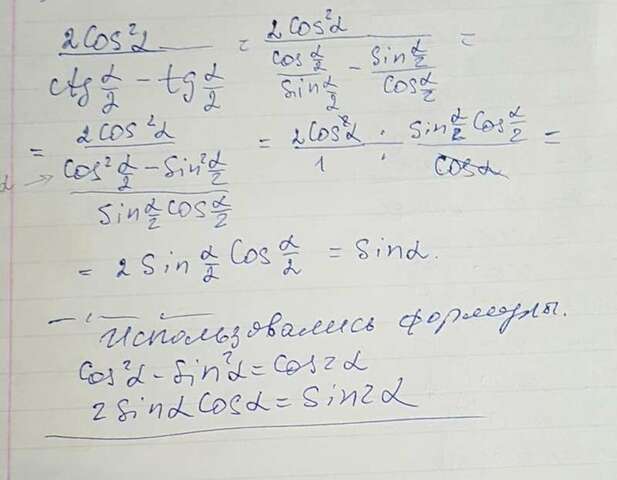 2cos²α / (ctg α/2 − tg α/2) = 2cos²α / (cos α/2 / sin α/2 − sin α/2 / cos α/2) =
= 2cos²α / ((cos² α/2 − sin² α/2) / (sin α/2 cos α/2)) = 2cos²α / 1 · sin α/2 cos α/2 / cosα =
= 2 sin α/2 cos α/2 = sinα.
Использовались формулы.
cos²α − sin²α = cos2α
2 sinα cosα = sin2α